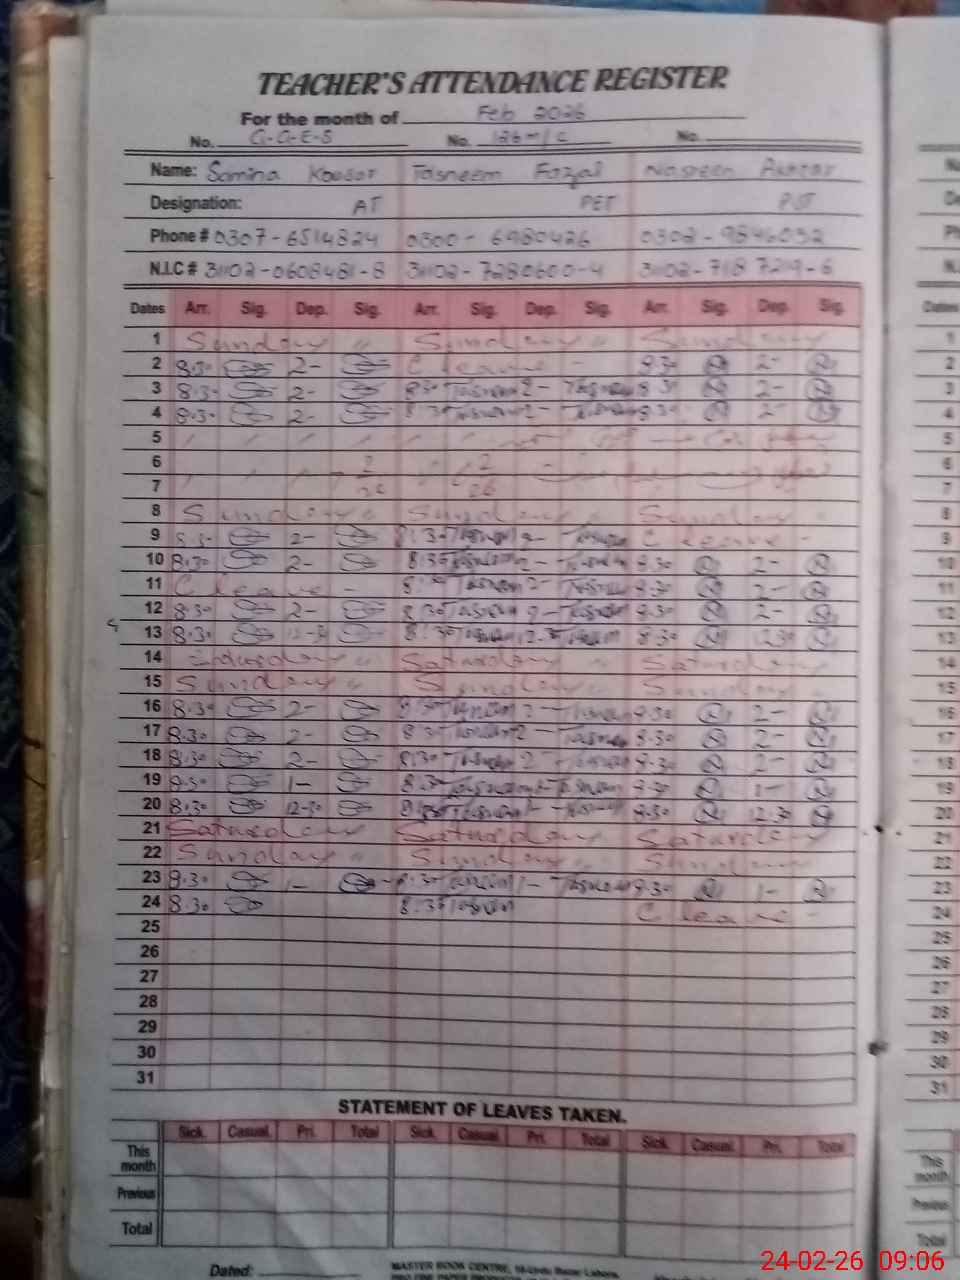 TEACHER'S ATTENDANCE REGISTER
For the month of Feb 2026
No. G-G-E-S No. 126-/C No.
Name: Samina Kousar Tasneem Fazal Nasreen Akhtar
Designation: AT PET PST
Phone # 0307-6514824 0300-6980426 0302-9846032
N.I.C # 31102-0608481-8 31102-7280600-4 31102-7187219-6
Dates Arr. Sig. Dep. Sig. Arr. Sig. Dep. Sig. Arr. Sig. Dep. Sig.
1 Sunday " Sunday " Sunday
2 8.30 2- C leave - 8.30 2-
3 8.30 2- 8.30 Tasneem 2- Tasneem 8.30 2-
4 8.30 2- 8.30 Tasneem 2- Tasneem 8.30 2-
5
6 2 2
7 26 26
8 Sunday " Sunday Sunday "
9 8.30 2- 8.30 Tasneem 2- Tasneem C leave -
10 8.30 2- 8.30 Tasneem 2- Tasneem 8.30 2-
11 C leave - 8.30 Tasneem 2- Tasneem 8.30 2-
12 8.30 2- 8.30 Tasneem 2- Tasneem 8.30 2-
13 8.30 12-30 8.30 Tasneem 12.30 Tasneem 8.30 12.30
14 Saturday " Saturday " Saturday
15 Sunday " Sunday " Sunday "
16 8.30 2- 8.30 Tasneem 2- Tasneem 8.30 2-
17 8.30 2- 8.30 Tasneem 2- Tasneem 8.30 2-
18 8.30 2- 8.30 Tasneem 2- Tasneem 8.30 2-
19 8.30 1- 8.30 Tasneem Tasneem 8.30 1-
20 8.30 12-30 8.30 Tasneem Tasneem 8.30 12.30
21 Saturday Saturday Saturday
22 Sunday " Sunday " Sunday
23 8.30 1- 8.30 Tasneem 1- Tasneem 8.30 1-
24 8.30 8.30 Tasneem C leave -
25
26
27
28
29
30
31
STATEMENT OF LEAVES TAKEN.
Sick. Casual. Pri. Total Sick. Casual. Pri. Total Sick. Casual. Pri. Total
This month
Previous
Total
Dated:
MASTER BOOK CENTRE, 18-Urdu Bazar Lahore.
24-02-26 09:06